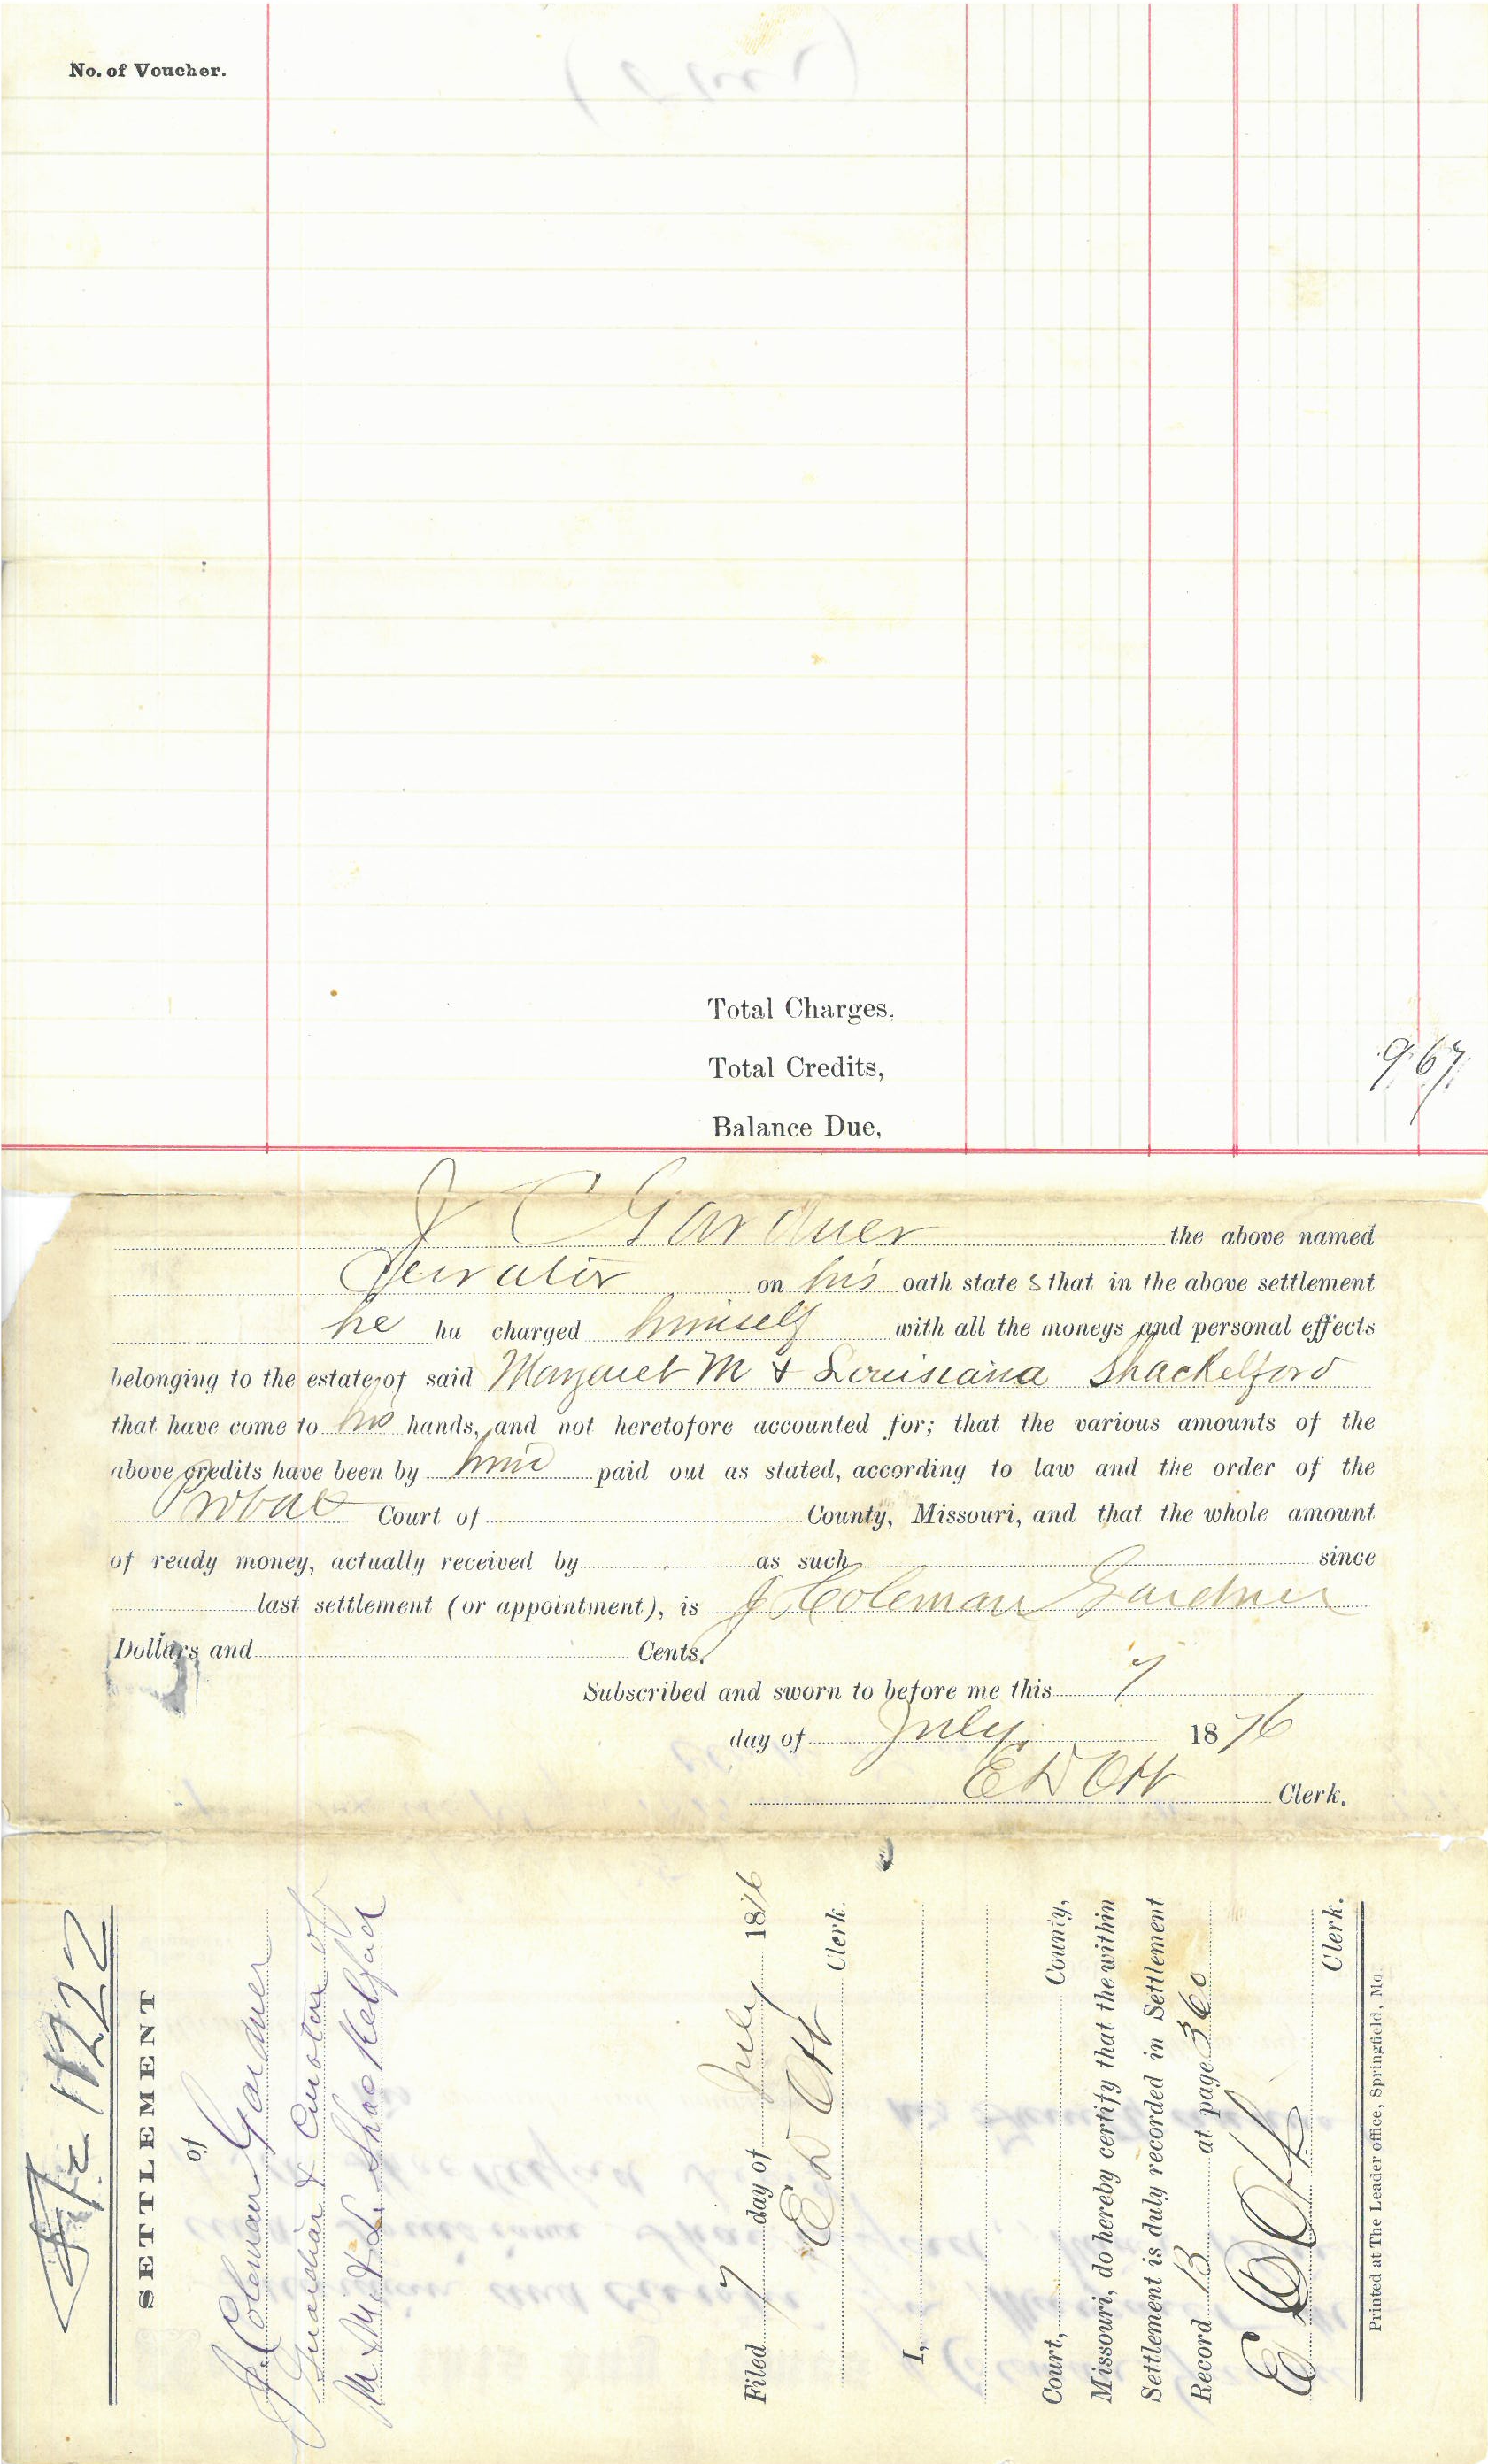 No. of Voucher.
Total Charges.
Total Credits,
967
Balance Due,
J C Gardner the above named
Curator on his oath state s that in the above settlement
he ha charged himself with all the moneys and personal effects
belonging to the estate of said Margaret M & Louisiana Shackelford
that have come to his hands, and not heretofore accounted for; that the various amounts of the
above credits have been by him paid out as stated, according to law and the order of the
Probate Court of County, Missouri, and that the whole amount
of ready money, actually received by as such since
last settlement (or appointment), is J Coleman Gardner
Dollars and Cents.
Subscribed and sworn to before me this 7
day of July 1876
E D Ott Clerk.
1122
SETTLEMENT
of
J. Coleman Gardner
Guardian & Curator of
M. M. & L. Shackelford
Filed 7 day of July 1876
E D Ott Clerk.
I,
Court, County,
Missouri, do hereby certify that the within
Settlement is duly recorded in Settlement
Record B at page 360
E D Ott Clerk.
Printed at The Leader office, Springfield, Mo.